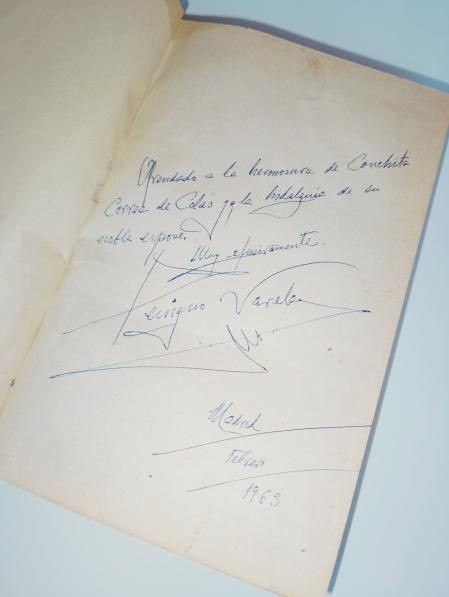 Ofrendado a la hermosura de Conchita
Correa de Celás y a la hidalguía de su
noble esposo.
Muy efusivamente.
Benigno Varela
Madrid
Febrero
1963